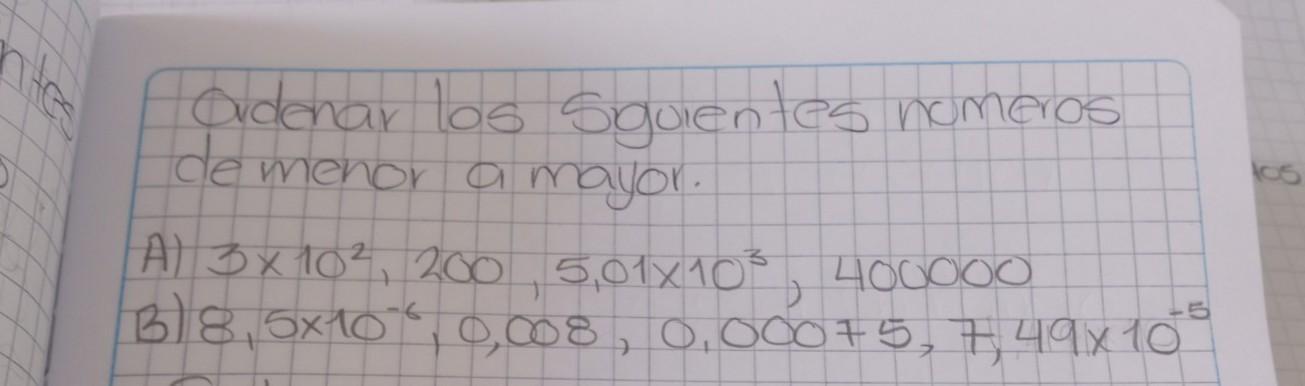 ntes
Ordenar los Sguientes números
de menor a mayor.
A) 3x10², 200, 5,01x10³, 400000
B) 8,5x10⁻⁶, 0,008, 0,00075, 7,49x10⁻⁵
los